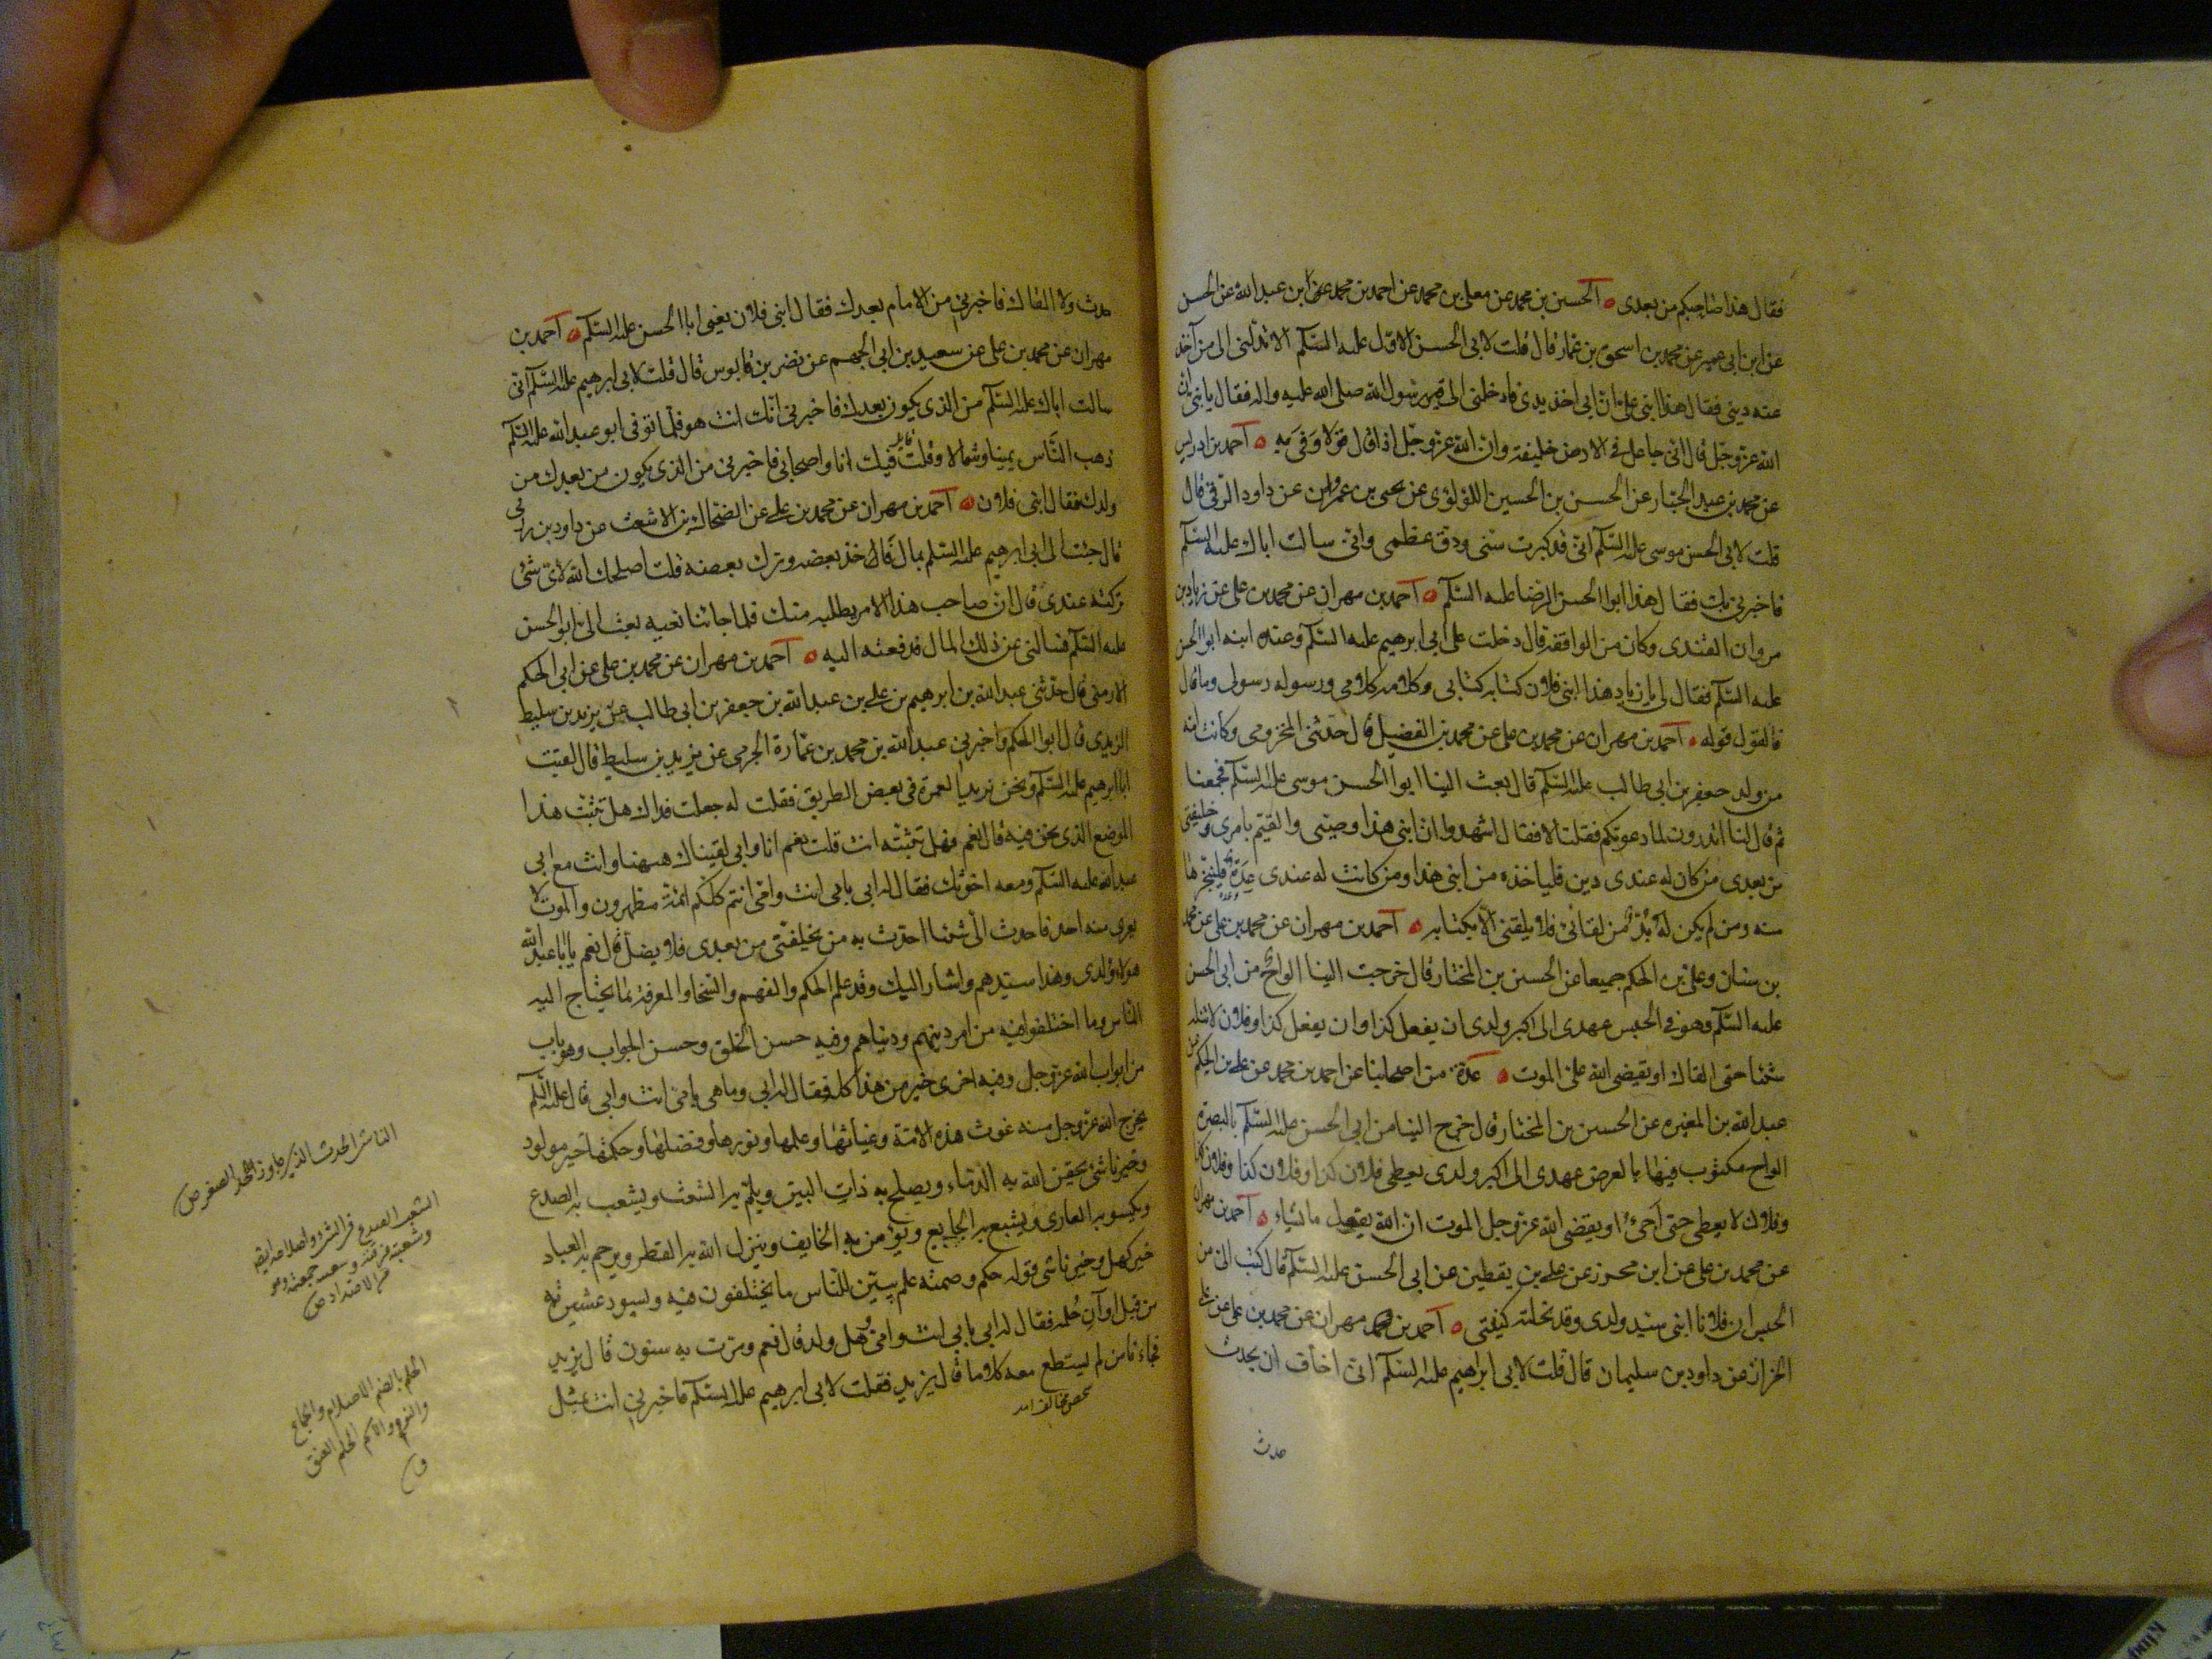 فقال هذا صاحبكم من بعدى ه الحسين بن محمد عن معلى بن محمد عن احمد بن محمد عن ابن عبد الله عن الحسن
عن ابن ابى عمير عن محمد بن اسحق بن عمار قال قلت لابى الحسن الاول عليه السّلم الا تدلّنى الى من آخذ
عنه دينى فقال هذا ابنى علىّ انّ ابى اخذ بيدى فادخلنى الى قبر رسول الله صلى الله عليه واله فقال يا بنى انّ
الله عز وجلّ قال انى جاعل فى الارض خليفة وانّ الله عز وجلّ اذا قال قولا وفى به ه احمد بن ادريس
عن محمد بن عبد الجبار عن الحسن بن الحسين اللؤلؤى عن يحيى بن عمرو عن داود الرقى قال
قلت لابى الحسن موسى عليه السّلم انى قد كبرت سنّى ودق عظمى وانى سالت اباك عليه السّلم
فاخبرنى بك فقال هذا ابو الحسن الرضا عليه السّلم ه احمد بن مهران عن محمد بن على عن زياد بن
مروان القندى وكان من الواقفة قال دخلت على ابى ابرهيم عليه السّلم وعنده ابنه ابو الحسن
عليه السّلم فقال لى يا زياد هذا ابنى فلان كتابه كتابى وكلامه كلامى ورسوله رسولى وما قال
فالقول قوله ه احمد بن مهران عن محمد بن على عن محمد بن الفضيل قال حدّثنى المخزومى وكانت امه
من ولد جعفر بن ابى طالب عليه السّلم قال بعث الينا ابو الحسن موسى عليه السّلم فجمعنا
ثم قال لنا اتدرون لما دعوتكم فقلنا لا فقال اشهدوا ان ابنى هذا وصيى والقيّم بامرى وخليفتى
من بعدى من كان له عندى دين فلياخذه من ابنى هذا ومن كانت له عندى عدة فلينجزها
منه ومن لم يكن له بدّ من لقائى فلا يلقنى الّا بكتابه ه احمد بن مهران عن محمد بن على عن محمد
بن سنان وعلى بن الحكم جميعا عن الحسين بن المختار قال خرجت الينا الواح من ابى الحسن
عليه السّلم وهو فى الحبس عهدى الى اكبر ولدى ان يفعل كذا وان يفعل كذا وفلان لا تنله
شيئا حتى القاك او يقضى الله علىّ الموت ه عدة من اصحابنا عن احمد بن محمد عن على بن الحكم عن
عبد الله بن المغيره عن الحسين بن المختار قال خرج الينا من ابى الحسن عليه السّلم بالبصرة
الواح مكتوب فيها بالعرض عهدى الى اكبر ولدى يعطى فلان كذا وفلان كذا وفلان كذا
وفلان لا يعطى حتى اجىء او يقضى الله عز وجل الموت ان الله يفعل ما يشاء ه احمد بن مهران
عن محمد بن على عن ابن محرز عن على بن يقطين عن ابى الحسن عليه السّلم قال كتب الىّ من
الحبس ان فلانا ابنى سيّد ولدى وقد نحلته كنيتى ه احمد بن مهران عن محمد بن على عن ابى على
الخزاز عن داود بن سليمان قال قلت لابى ابراهيم عليه السّلم انى اخاف ان يحدث
حدث
حدث ولا القاك فاخبرنى من الامام بعدك فقال ابنى فلان يعنى ابا الحسن عليه السّلم ه احمد بن
مهران عن محمد بن على عن سعيد بن ابى الجهم عن نضر بن قابوس قال قلت لابى ابرهيم عليه السّلم انى
سالت اباك عليه السّلم من الذى يكون بعدك فاخبرنى انك انت هو فلما توفى ابو عبد الله عليه السّلم
ذهب النّاس يمينا وشمالا وقلت فيك انا واصحابى فاخبرنى من الذى يكون من بعدك من
ولدك فقال ابنى فلان ه احمد بن مهران عن محمد بن على عن الضحاك بن الاشعث عن داود بن زربى
قال جئت الى ابى ابرهيم عليه السّلم بمال قال فاخذ بعضه وترك بعضه قلت اصلحك الله لاى شئ
تركته عندى قال ان صاحب هذا الامر يطلبه منك فلما جائنا نعيه بعث الىّ ابو الحسن
عليه السّلم فسالنى عن ذلك المال فدفعته اليه ه احمد بن مهران عن محمد بن على عن ابى الحكم
الارمنى قال حدثنى عبد الله بن ابرهيم بن على بن عبد الله بن جعفر بن ابى طالب عن يزيد بن سليط
الزيدى قال ابو الحكم واخبرنى عبد الله بن محمد بن عمارة الجرمى عن يزيد بن سليط قال لقيت
ابا ابرهيم عليه السّلم ونحن نريد العمرة فى بعض الطريق فقلت له جعلت فداك هل تثبت هذا
الموضع الذى نحن فيه قال نعم فهل تثبته انت قلت نعم انا وابى لقيناك ههنا وانت مع ابى
عبد الله عليه السّلم ومعه اخوتك فقال له ابى بابى انت وامى انتم كلكم ائمة مطهرون والموت لا
يعرى منه احد فاحدث الىّ شيئا احدّث به من يخلفنى من بعدى فلا يضل قال نعم يا ابا عبد الله
هولاء ولدى وهذا سيّدهم واشار اليك وقد علم الحكم والفهم والسّخا والمعرفة بما يحتاج اليه
النّاس وما اختلفوا فيه من امر دينهم ودنياهم وفيه حسن الخلق وحسن الجواب وهو باب
من ابواب الله عز وجل وفيه اخرى خير من هذا كله فقال له ابى وما هى بابى انت وامى قال عليه السّلم
يخرج الله عز وجل منه غوث هذه الامّة وغياثها وعلمها ونورها وفضلها وحكمتها خير مولود
وخير ناشئ يحقن الله به الدّماء ويصلح به ذات البين ويلمّ به الشعث ويشعب به الصدع
ويكسو به العارى ويشبع به الجايع ويؤمن به الخايف وينزل الله به القطر ويرحم به العباد
خير كهل وخير ناشى قوله حكم وصمته علم يبيّن للنّاس ما يختلفون فيه ويسود عشيرته
من قبل اوآن حلمه فقال له ابى بابى انت وامى وهل ولد قال نعم ومرّت به سنون قال يزيد
فجاءنا من لم يستطع معه كلاما قال يزيد فقلت لابى ابرهيم عليه السّلم فاخبرنى انت بمثل
الناشئ الحدث الذى جاوز حدّ الصغر ص